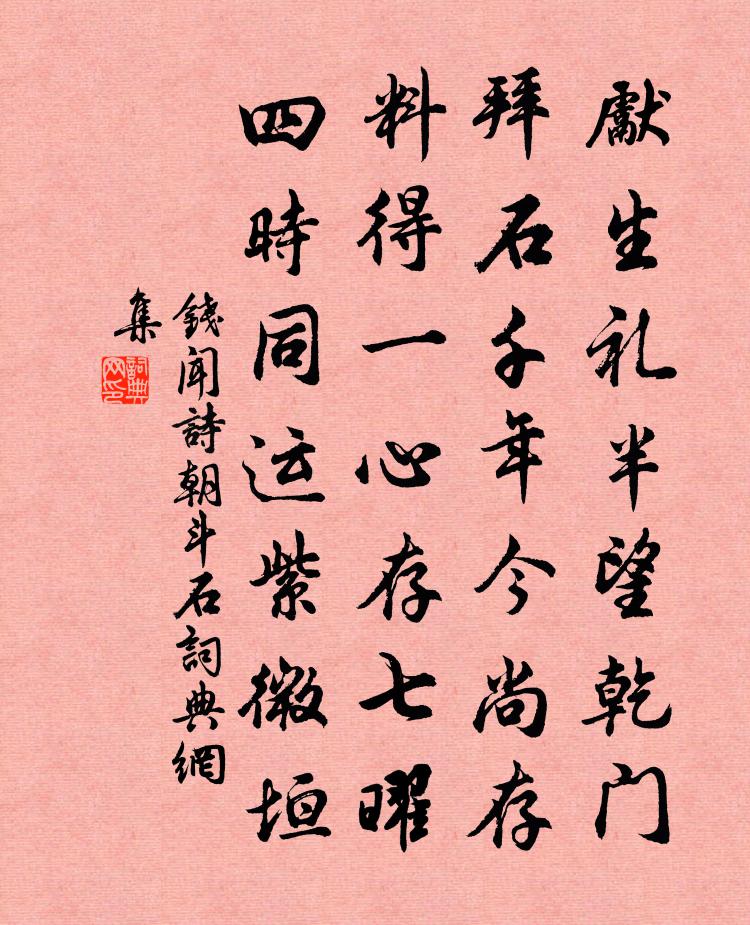 獻生礼半望乾门
拜石千年今尚存
料得一心存七曜
四時同运紫微垣
錢聞詩朝斗石詞典網
集
詞典
网印